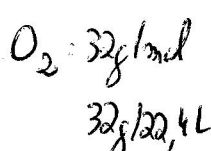 O₂: 32g/mol
32g/22,4L